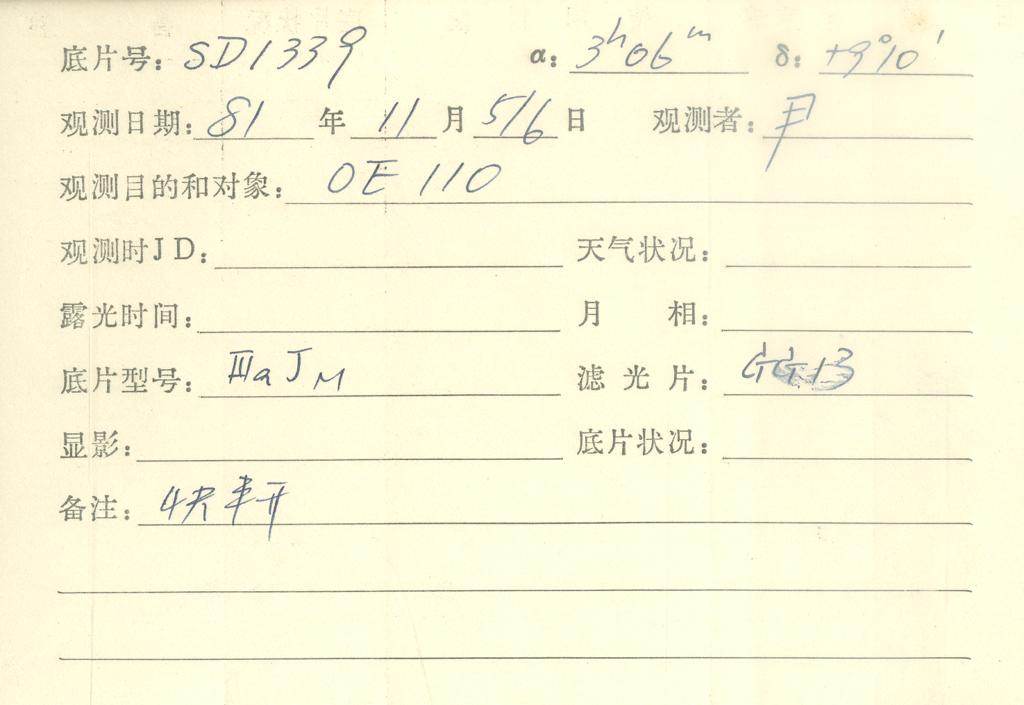 底片号: SD1339 α: 3ʰ06ᵐ δ: +9°10′
观测日期: 81 年 11 月 5/6 日 观测者:
观测目的和对象: OE 110
观测时JD: 天气状况:
露光时间: 月 相:
底片型号: ⅢaJM 滤光片: GG13
显影: 底片状况:
备注: